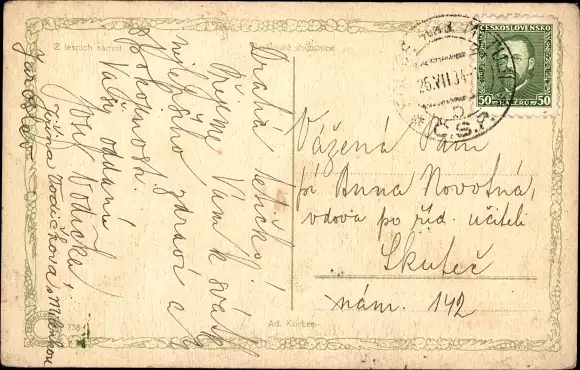 Z lesních samot
dopisnice
ČESKOSLOVENSKO
50 KALERO 50
25.VII.34
Č.S.P.
Drahá tetičko!
Přejme Vám k svátku
nejlepšího zdraví a
spokojenosti.
Vaši oddaní
Jos. Vodička,
Jiřina Vodičková s Milenkou
Jaroslav
Vážená Paní
pí Anna Novotná,
vdova po říd. učiteli
Skuteč
nám. 142
738
Ad. Körbre